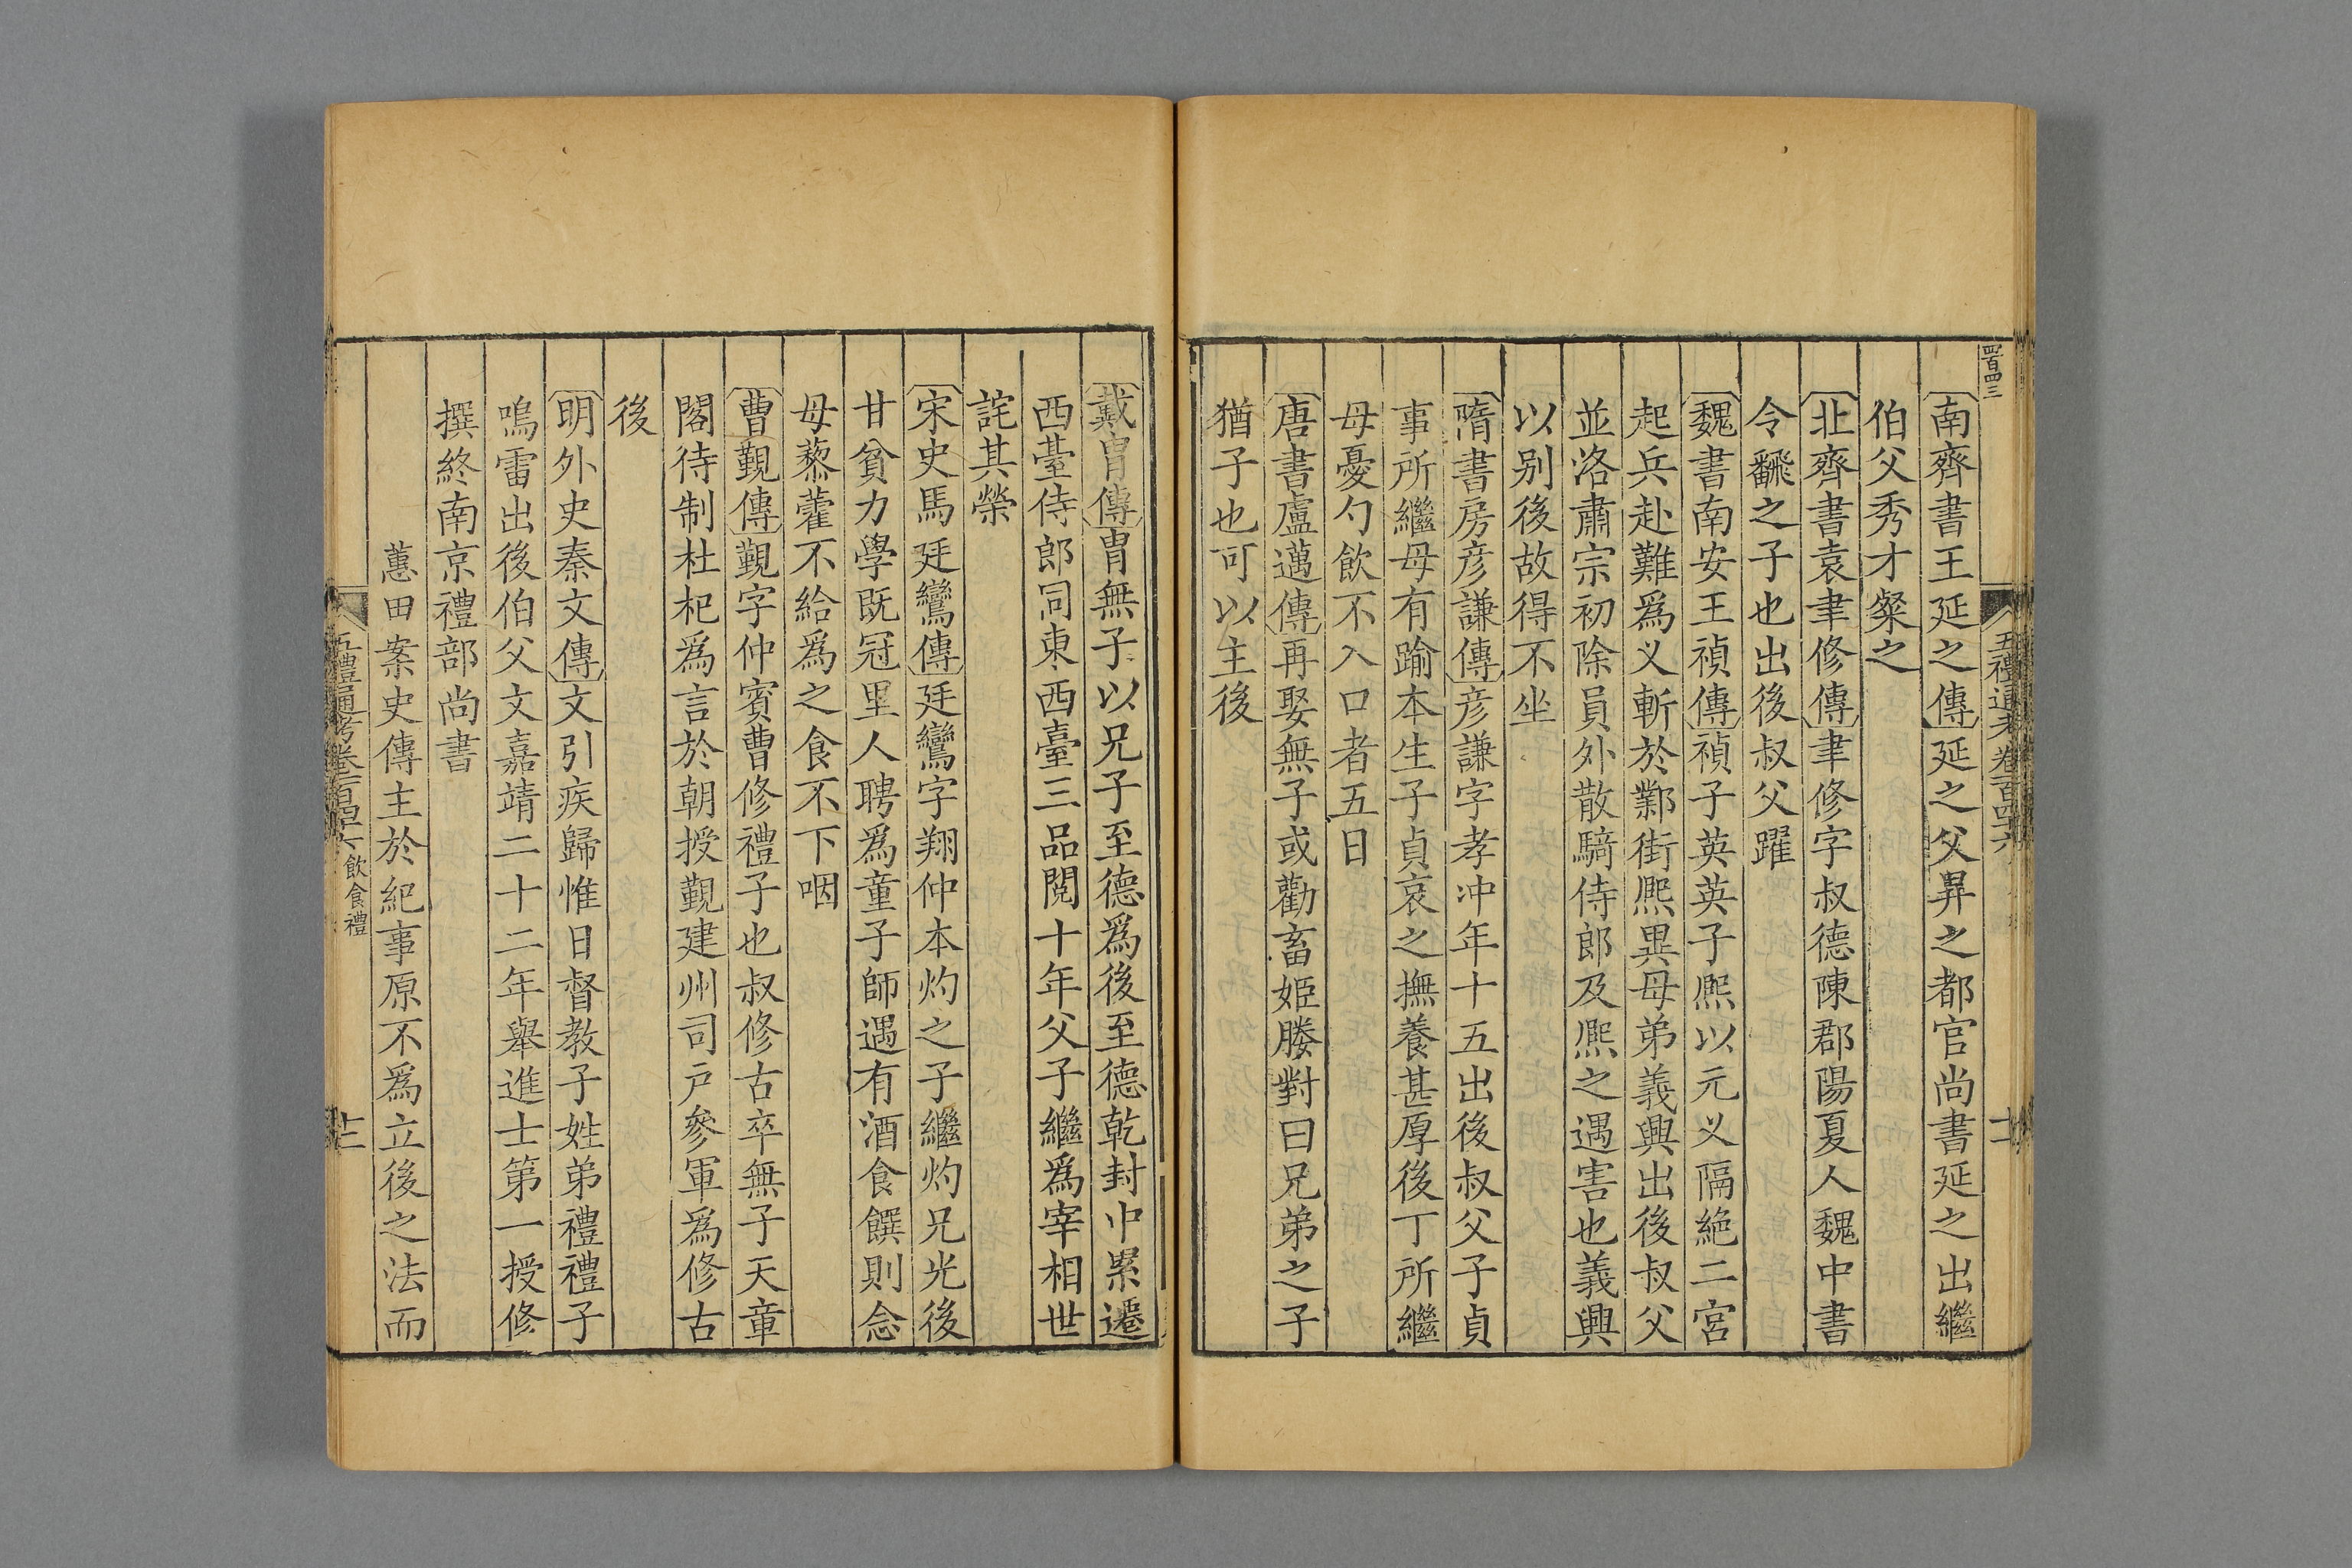 南齊書王延之傳延之父昇之都官尚書延之出繼
伯父秀才粲之
北齊書袁聿修傳聿修字叔德陳郡陽夏人魏中書
令飜之子也出後叔父躍
魏書南安王禎傳禎子英英子熙以元义隔絶二宮
起兵赴難爲义斬於鄴街熙異母弟義興出後叔父
並洛肅宗初除員外散騎侍郎及熙之遇害也義興
以别後故得不坐
隋書房彦謙傳彦謙字孝冲年十五出後叔父子貞
事所繼母有踰本生子貞哀之撫養甚厚後丁所繼
母憂勺飲不入口者五日
唐書盧邁傳再娶無子或勸畜姬媵對曰兄弟之子
猶子也可以主後
戴胄傳胄無子以兄子至德爲後至德乾封中累遷
西臺侍郎同東西臺三品閱十年父子繼爲宰相世
詫其榮
宋史馬廷鸞傳廷鸞字翔仲本灼之子繼灼兄光後
甘貧力學既冠里人聘爲童子師遇有酒食饌則念
母藜藿不給爲之食不下咽
曹覲傳覲字仲賓曹修禮子也叔修古卒無子天章
閣待制杜杞爲言於朝授覲建州司户參軍爲修古
後
明外史秦文傳文引疾歸惟日督教子姓弟禮禮子
鳴雷出後伯父文嘉靖二十二年舉進士第一授修
撰終南京禮部尚書
蕙田案史傳主於紀事原不爲立後之法而
五禮通考卷一百四十六 飲食禮